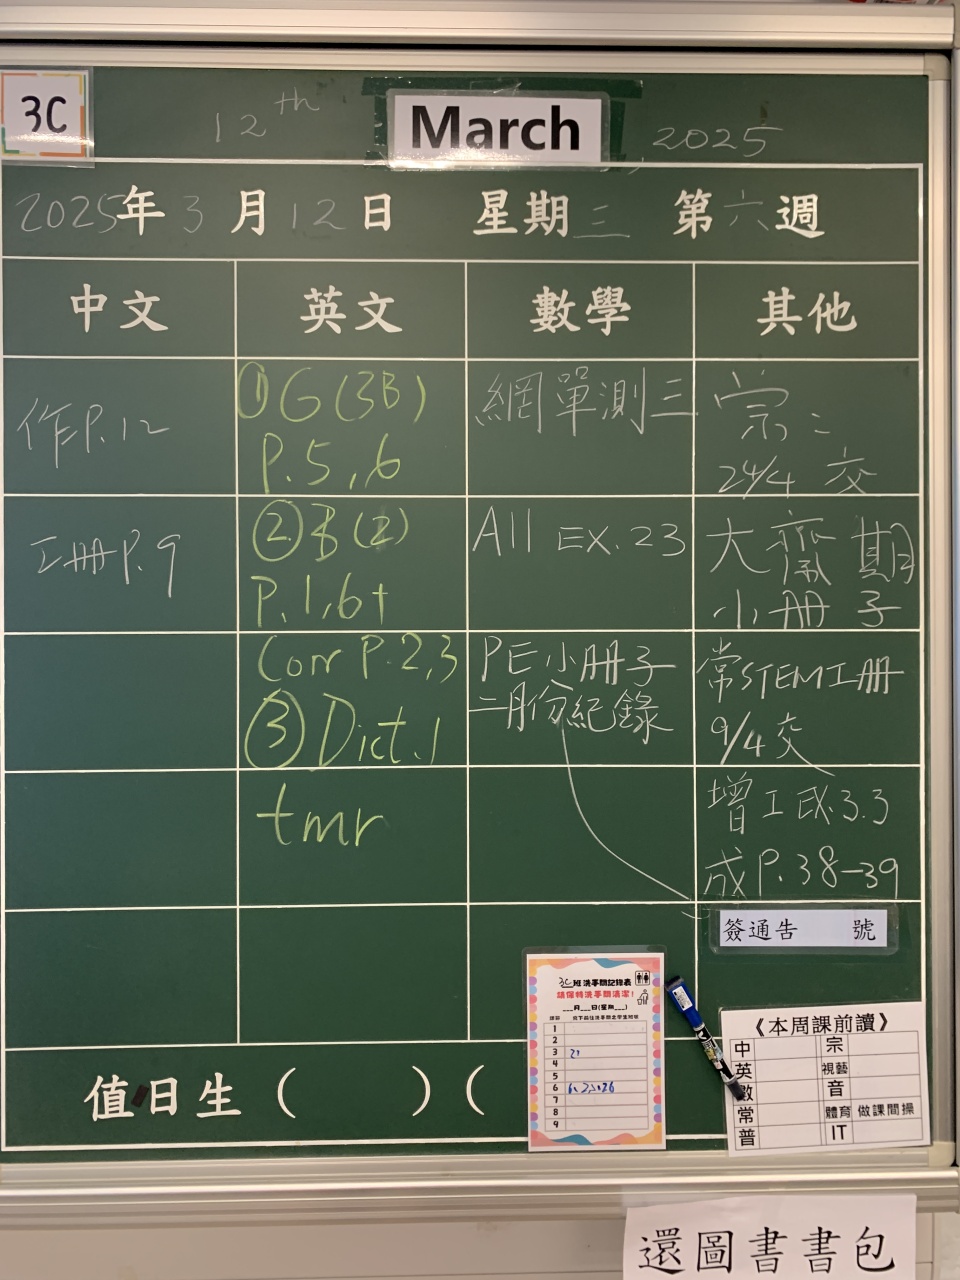 3C
12th March, 2025
2025年3月12日 星期三 第六週
中文 英文 數學 其他
作P.12
工冊P.9
①G(3B)
P.5,6
②B(2)
P.1,6+
Corr P.2,3
③Dict.1
tmr
網單測三
All EX.23
PE小冊子
二月份紀錄
宗:
24/4 交
大齋期
小冊子
常STEM工冊
9/4交
增工EX.3.3
成P.38-39
簽通告 號
值日生( )(
3C班洗手間記錄表
請保持洗手間清潔!
___月___日(星期___)
1
2
3 21
4
5
6
7
8
9
《本周課前讀》
中 宗
英 視藝
數 音
常 體育 做課間操
普 IT
還圖書書包